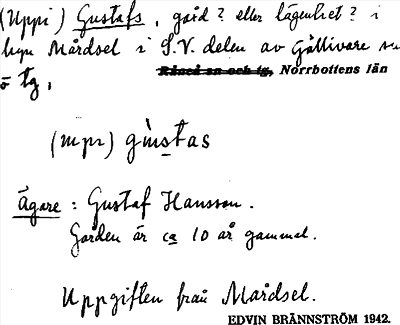 (Uppi) Gustafs, gård? eller lägenhet? i
byn Mårdsel i S.V. delen av Gällivare sn
o tg, Råneå sn och tg, Norrbottens län
(mpr) gùstas
Ägare: Gustaf Hansson.
Gården är ca 10 år gammal.
Uppgiften från Mårdsel.
EDVIN BRÄNNSTRÖM 1942.